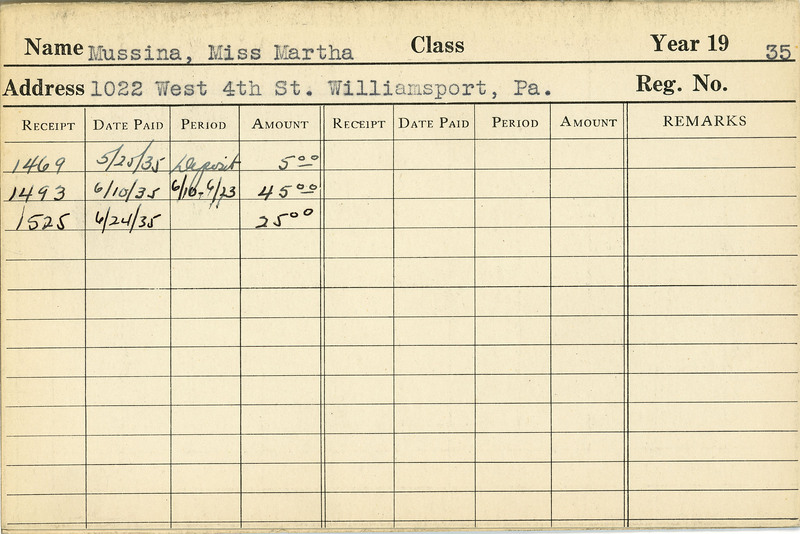 Name Mussina, Miss Martha Class Year 19 35
Address 1022 West 4th St. Williamsport, Pa. Reg. No.
RECEIPT DATE PAID PERIOD AMOUNT RECEIPT DATE PAID PERIOD AMOUNT REMARKS
1469 5/25/35 Deposit 5.00
1493 6/10/35 6/10-6/23 45.00
1525 6/24/35 25.00